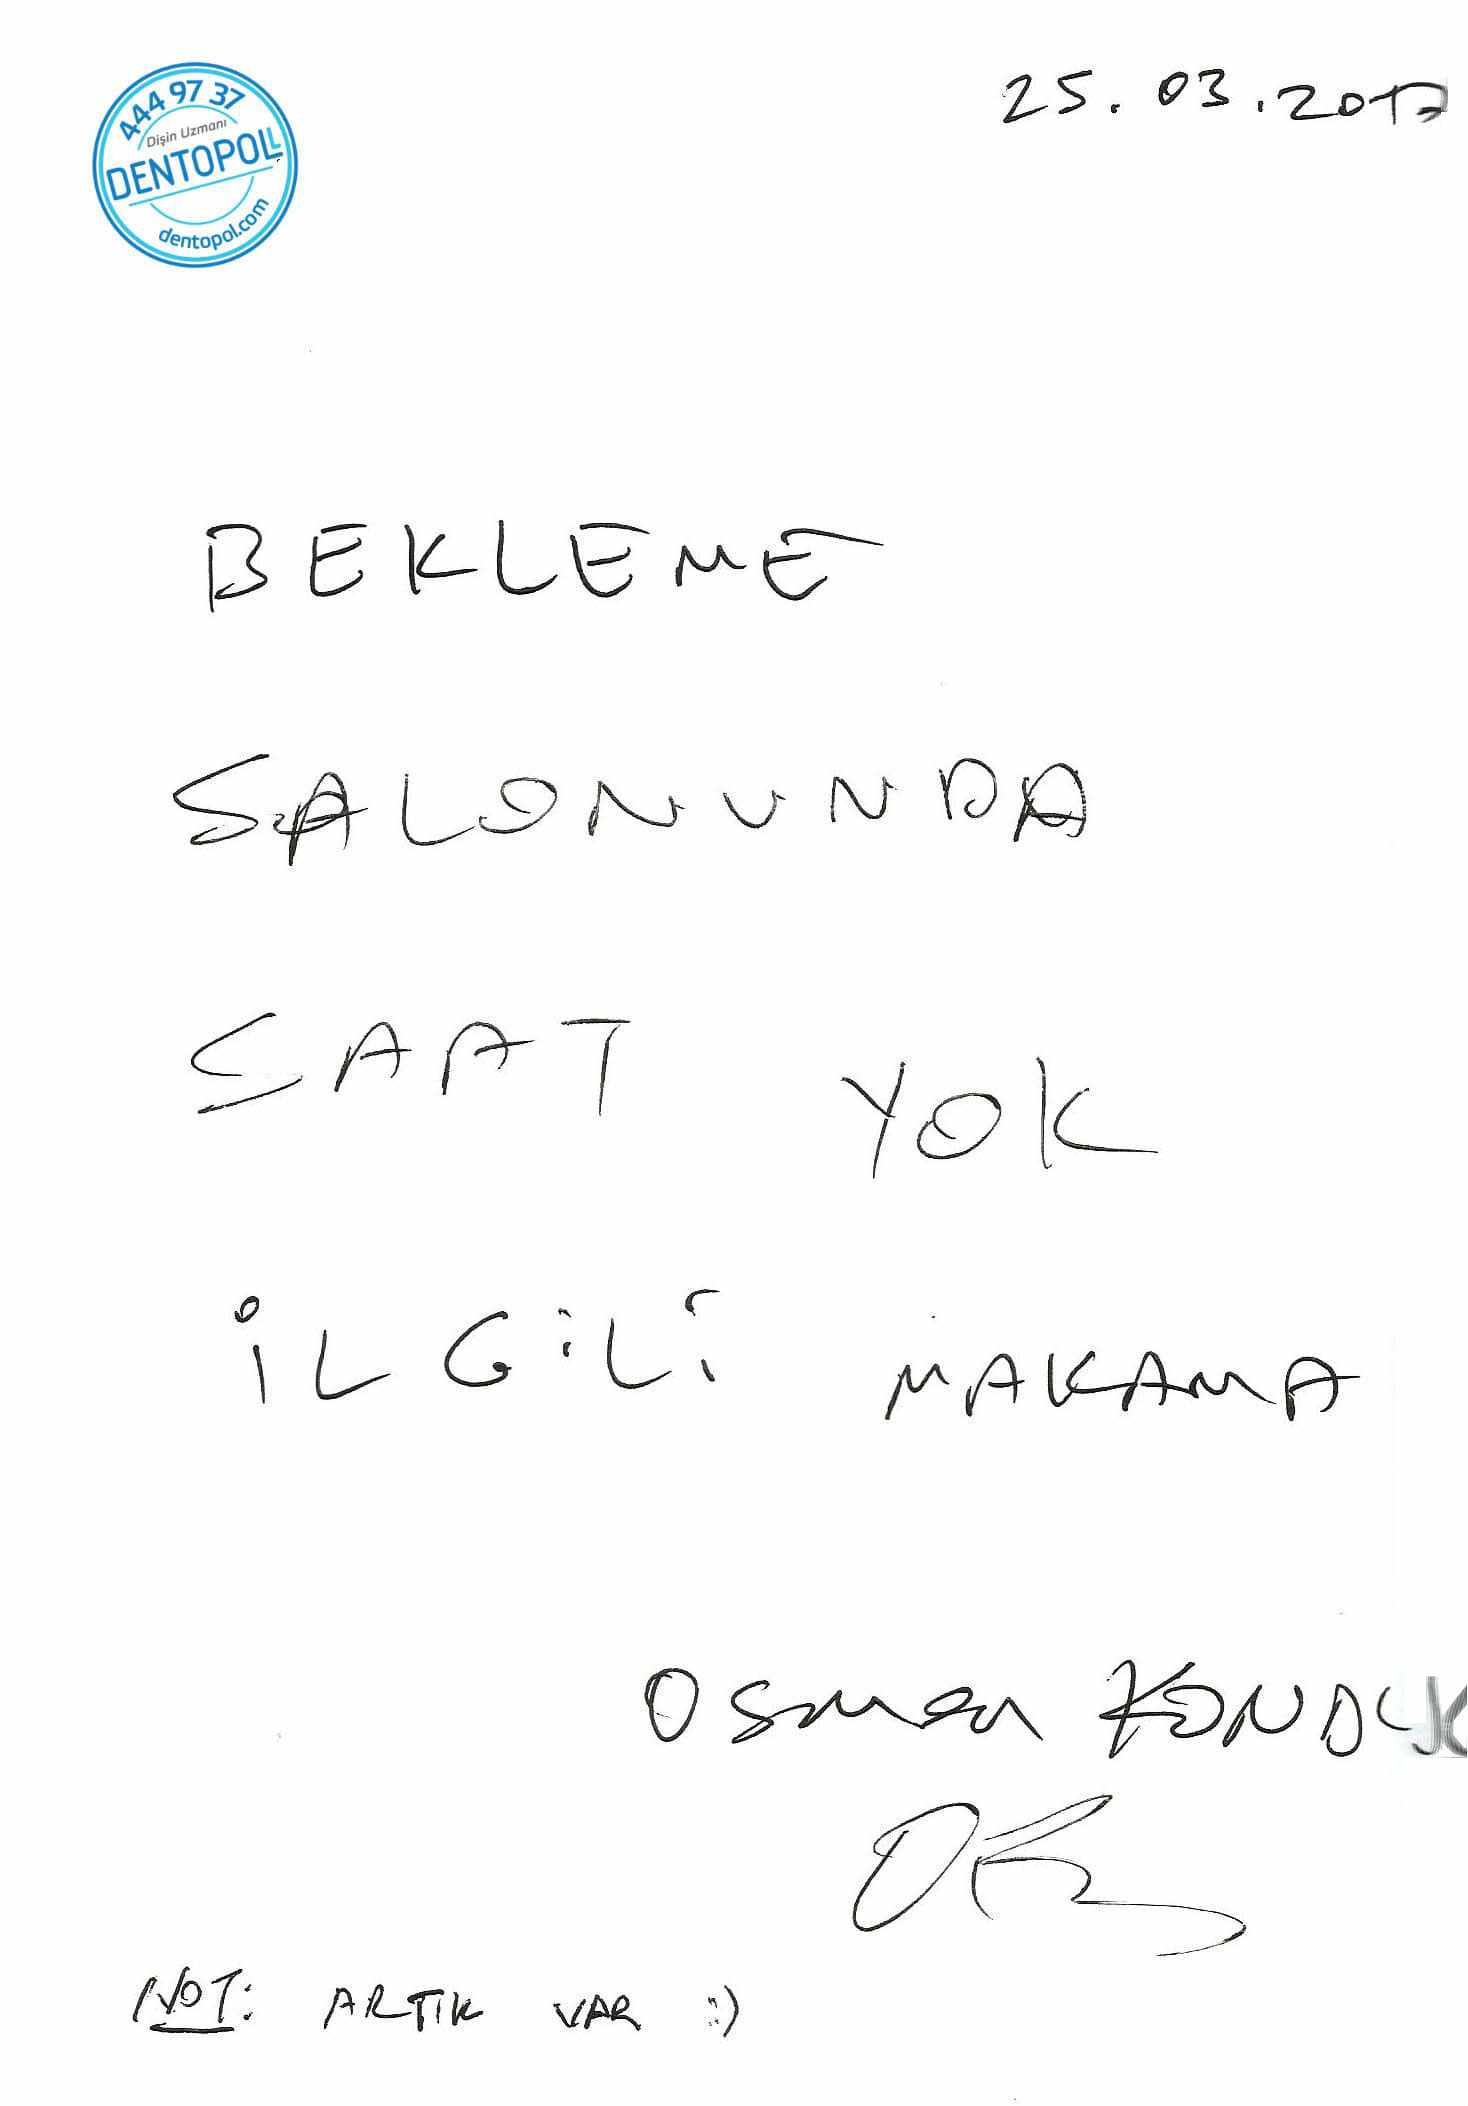 444 97 37
Dişin Uzmanı
DENTOPOLL
dentopol.com
25.03.2017
BEKLEME
SALONUNDA
SAAT YOK
İLGİLİ MAKAMA
Osman KONDUK
NOT: ARTIK VAR :)